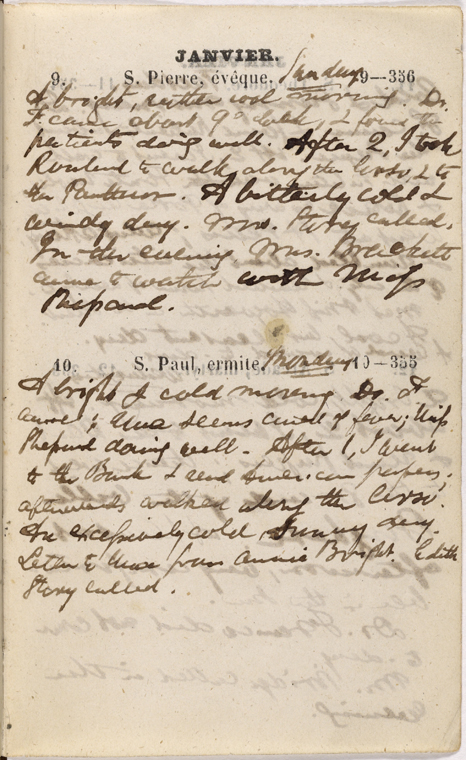 JANVIER.
9. S. Pierre, évéque. Sunday 9—356
A bright, rather cool morning. Dr.
F. came about 9 o'clock, & found the
patients doing well. After 2, I took
Rosebud to walk along the Corso, & to
the Pantheon. A bitterly cold &
windy day. Mrs. Story called.
In the evening Mrs. Brackett
came to watch with Miss
Shepard.
10. S. Paul, ermite, Monday 10—355
A bright & cold morning. Dr. F.
came; Una seems cured of fever; Miss
Shepard doing well. After 1, I went
to the Bank & read American papers;
afterwards walked along the Corso.
An excessively cold, sunny day.
Letter to Una from Annie Bright. Edith
Story called.